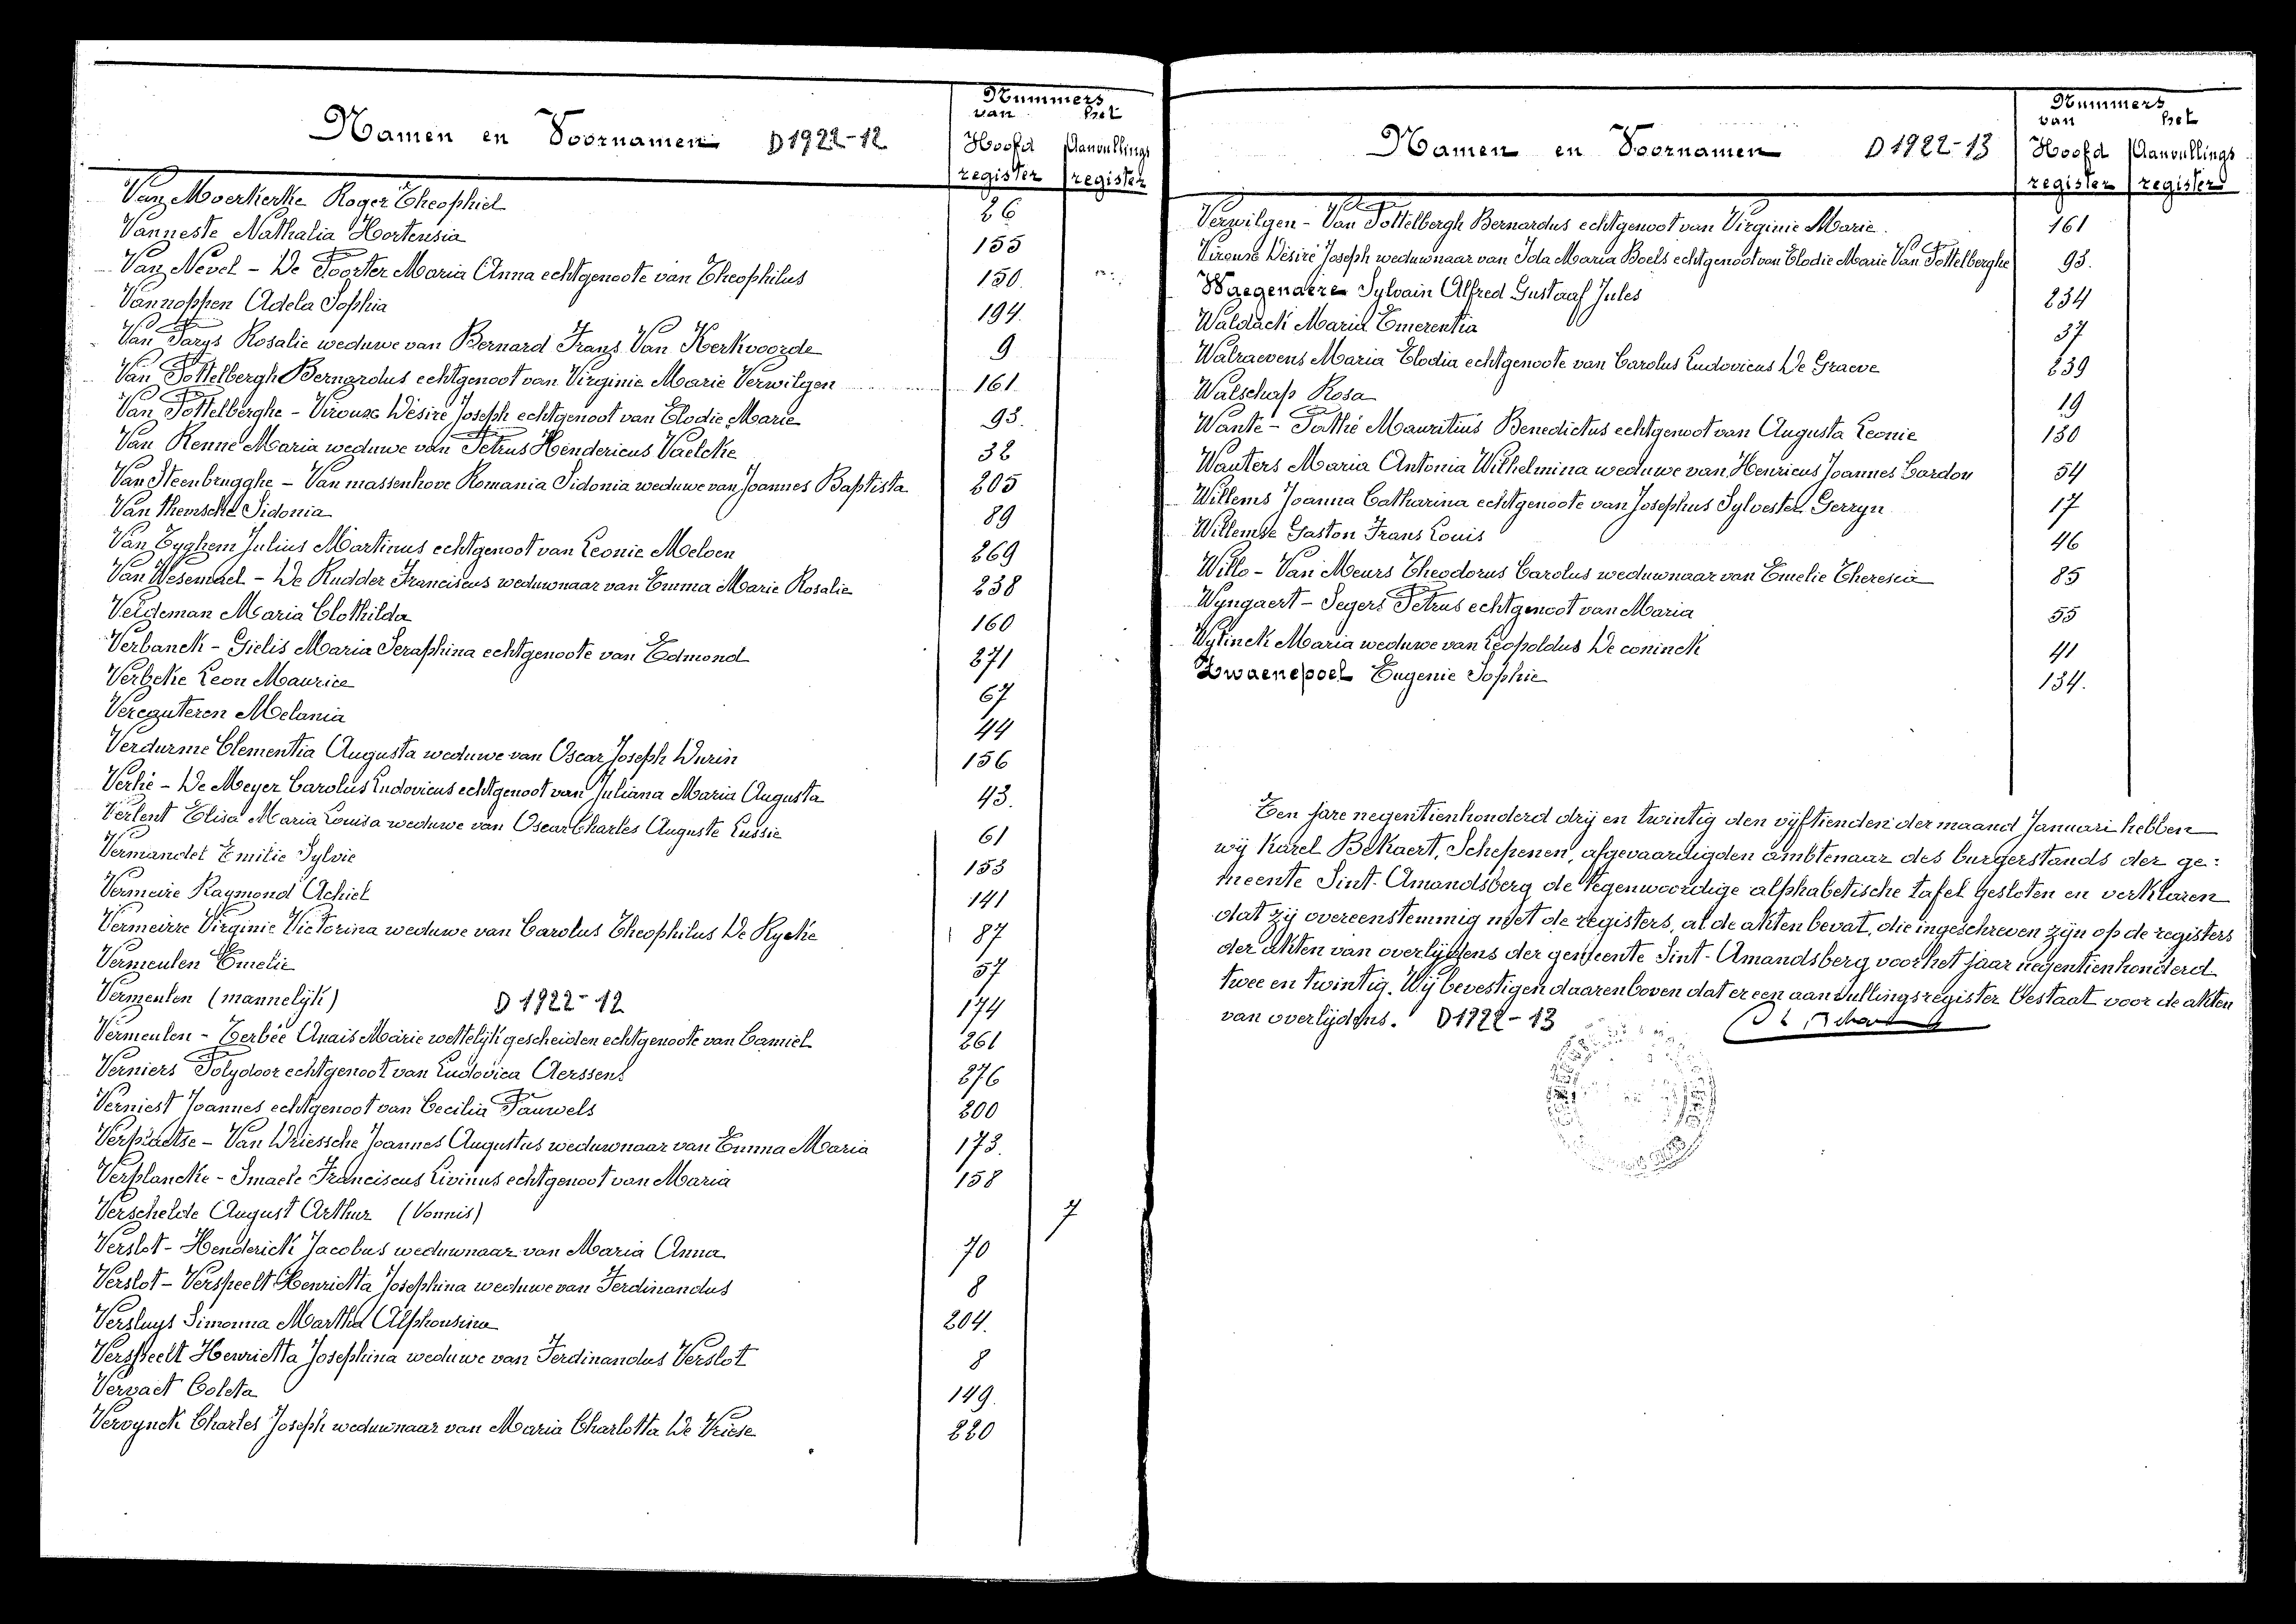 Namen en Voornamen D 1922-12
Nummers
van het
Hoofd Aanvullings
register register
Van Moerkerke Roger Theophiel 26
Vanneste Nathalia Hortensia 155
Van Nevel - De Poorter Maria Anna echtgenoote van Theophilus 150
Vannoppen Adela Sophia 194
Van Parys Rosalie weduwe van Bernard Frans Van Kerkvoorde 9
Van Pottelbergh Bernardus echtgenoot van Virginie Marie Verwilgen 161
Van Pottelberghe - Virouxe Désiré Joseph echtgenoot van Elodie Marie 93.
Van Renne Maria weduwe van Petrus Hendericus Vaelcke 32
Van Steenbrugghe - Van massenhove Romania Sidonia weduwe van Joannes Baptista 205
Van themsche Sidonia 89
Van Tyghem Julius Martinus echtgenoot van Leonie Meloen 269
Van Wesemael - De Rudder Franciscus weduwnaar van Emma Marie Rosalie 238
Veideman Maria Clothilda 160
Verbanck - Gielis Maria Seraphina echtgenoote van Edmond 271
Verbeke Leon Maurice 67
Vereguteren Melania 44
Verdurme Clementia Augusta weduwe van Oscar Joseph Durin 156
Verhé - De Meyer Carolus Ludovicus echtgenoot van Juliana Maria Augusta 43.
Verlent Elisa Maria Louisa weduwe van Oscar Charles Auguste Lussie 61
Vermandel Emilie Sylvie 153
Vermeire Raymond Achiel 141
Vermeirre Virginie Victorina weduwe van Carolus Theophilus De Rycke 87
Vermeulen Emelie 57
Vermeulen (mannelijk) D 1922-12 174
Vermeulen - Zerbée Anais Marie wettelijk gescheiden echtgenoote van Camiel 261
Verniers Polydoor echtgenoot van Ludovica Aerssens 276
Verniest Joannes echtgenoot van Cecilia Pauwels 200
Verplaetse - Van Driessche Joannes Augustus weduwnaar van Emma Maria 173.
Verplancke - Imacle Franciscus Livinus echtgenoot van Maria 158
Verschelde August Arthur (Vonnis) 7
Verslot - Henderick Jacobus weduwnaar van Maria Anna 70
Verslot - Verspeelt Henrietta Josephina weduwe van Ferdinandus 8
Versluys Simonna Martha Alphonsina 204.
Verspeelt Henrietta Josephina weduwe van Ferdinandus Verslot 8
Vervaet Coleta 149.
Vervynck Charles Joseph weduwnaar van Maria Charlotta De Vriese 220
Namen en Voornamen D 1922-13
Nummers
van het
Hoofd Aanvullings
register register
Verwilgen - Van Pottelbergh Bernardus echtgenoot van Virginie Marie 161
Virouxe Désiré Joseph weduwnaar van Ida Maria Boels echtgenoot van Elodie Marie Van Pottelberghe 93.
Waegenaere Sylvain Alfred Gustaaf Jules 234
Waldack Maria Emerentia 37
Walraevens Maria Elodia echtgenoote van Carolus Ludovicus De Graeve 239
Walschap Rosa 19
Wante - Pathé Mauritius Benedictus echtgenoot van Augusta Leonie 130
Wauters Maria Antonia Wilhelmina weduwe van Henricus Joannes Cardon 54
Willems Joanna Catharina echtgenoote van Josephus Sylvester Gerryn 17
Willemse Gaston Frans Louis 46
Willo - Van Meurs Theodorus Carolus weduwnaar van Emelie Theresia 85
Wyngaert - Segers Petrus echtgenoot van Maria 55
Wytinck Maria weduwe van Leopoldus De coninck 41
Zwaenepoel Eugenie Sophie 134.
Ten jare negentienhonderd drij en twintig den vijftienden der maand Januari hebben
wij Karel Bekaert, Schepenen, afgevaardigden ambtenaar des burgerstands der ge:
meente Sint-Amandsberg de tegenwoordige alphabetische tafel gesloten en verklaren
dat zij overeenstemmig met de registers, al de akten bevat, die ingeschreven zijn op de registers
der akten van overlijdens der gemeente Sint-Amandsberg voor het jaar negentienhonderd
twee en twintig. Wij bevestigen daarenboven dat er een aanvullingsregister bestaat voor de akten
van overlijdens. D 1922-13